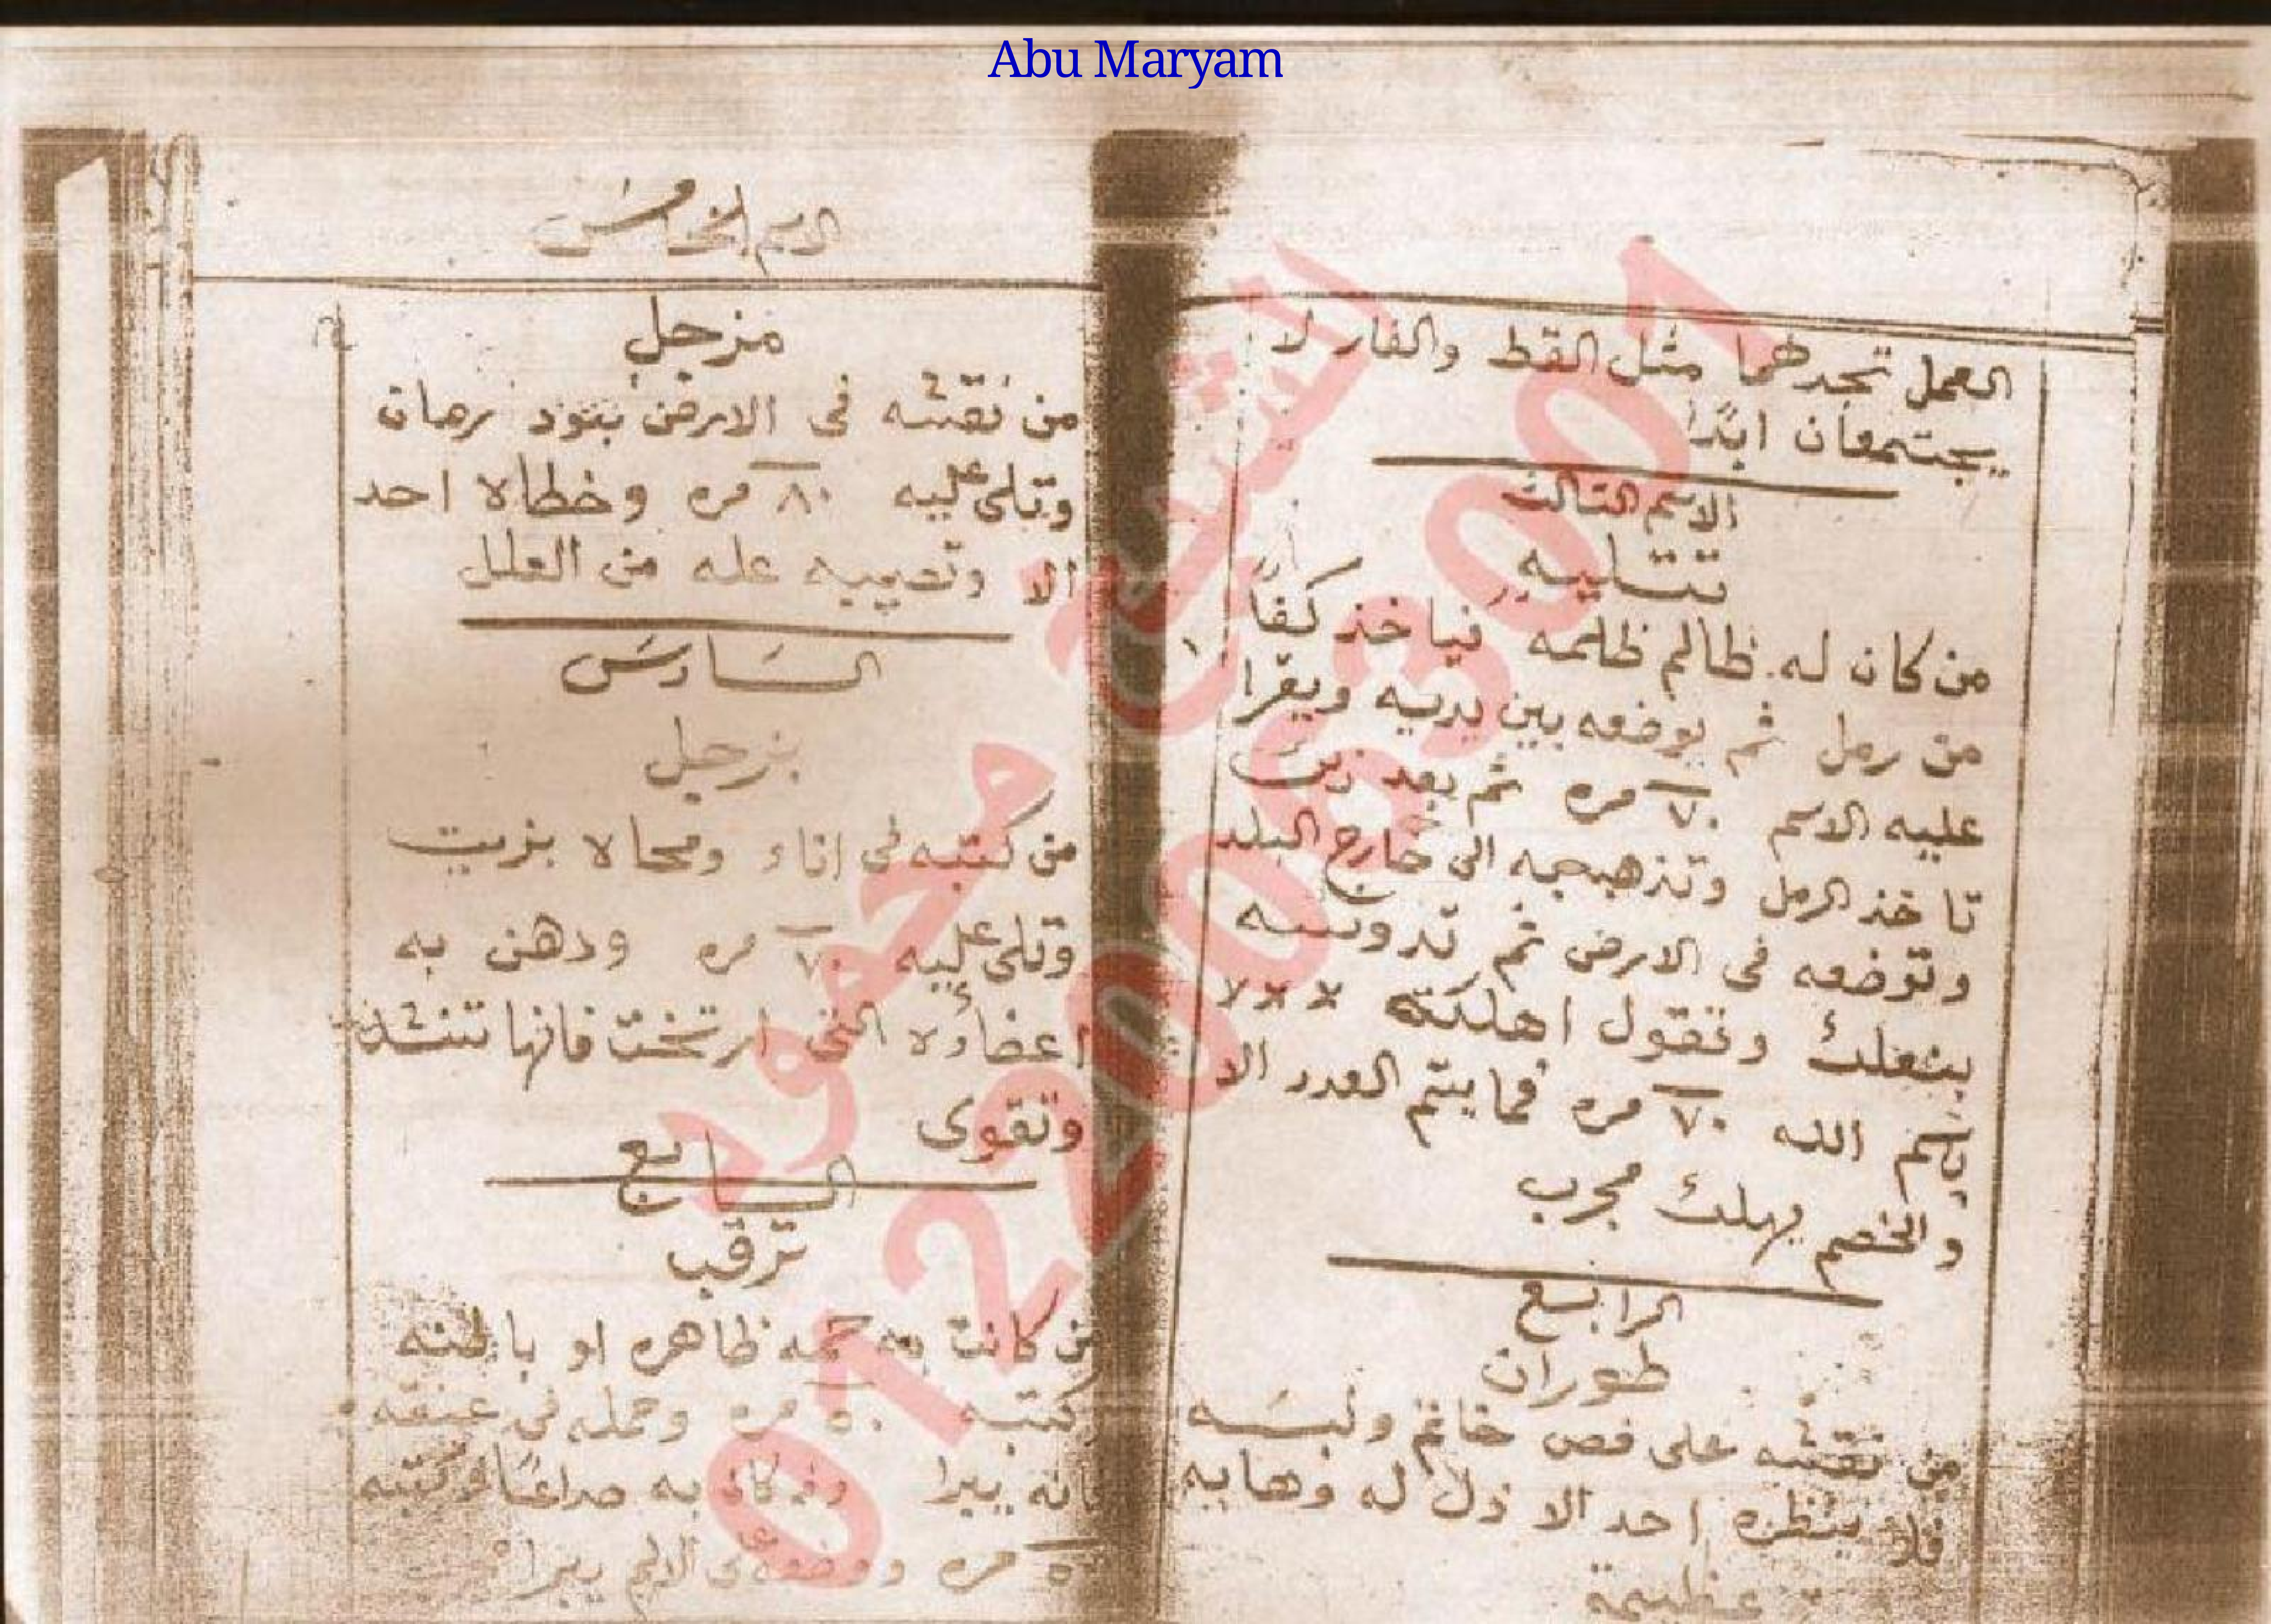 Abu Maryam
العمل تجدهما مثل القط والفار لا
يجتمعان ابدًا
الاسم الثالث
تتليه
من كان له ظالم ظلمه فياخذ كفاً
من رمل ثم يوضعه بين يديه ويقرا
عليه الاسم ٧٠ مره ثم بعد ذلك
تاخذ الرمل وتذهب به الى خارج البلد
وتوضعه فى الارض ثم تدوسه
بنعلك وتقول اهلكته ×××
باسم الله ٧٠ مره فما يتم العدد الا
والخصم يهلك مجرب
الرابع
طوران
من نقشه على فص خاتم ولبسه
فلا ينظره احد الا ذل له وهابه
عظيمة
الاسم الخامس
مزجل
من نقشه فى الارض بعود رمان
وتلى عليه ٨٠ مره وخطاه احد
الا وتصيبه عله من العلل
السادس
بزجل
من كتبه فى اناء ومحاه بزيت
وتلى عليه ٧٠ مره ودهن به
اعضاؤه التى ارتخت فانها تنشد
وتقوى
السابع
ترقب
من كانت به حمه ظاهره او باطنه
كتبه ٥٠ مره وحمله فى عنقه
فانه يبرا وان كان به صداعًا وكتبه
مره ووضعه على الالم يبرا
الشيخ محمود
01220063001